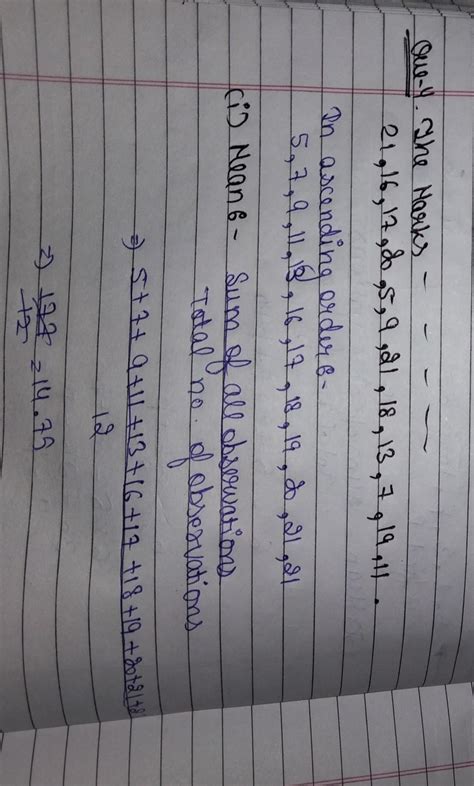 Que-4. The Marks - - - -
21,16,17,20,5,9,21,18,13,7,19,11.
In ascending order:-
5,7,9,11,13,16,17,18,19,20,21,21
(i) Mean:- Sum of all observations
Total no. of observations
⇒ 5+7+9+11+13+16+17+18+19+20+21+21
12
⇒ 177
12
=14.75